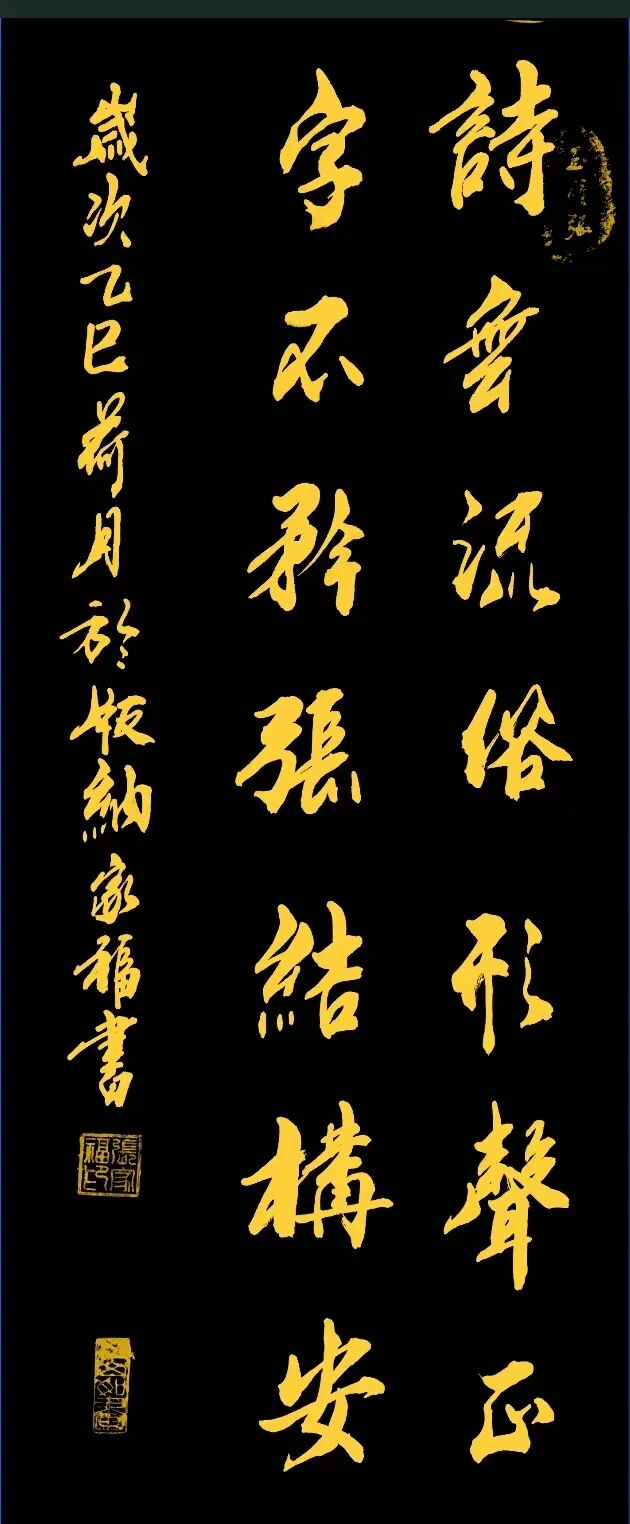 詩無流俗形聲正
字不矜張結構安
歲次乙巳荷月於版納家福書
張家福印